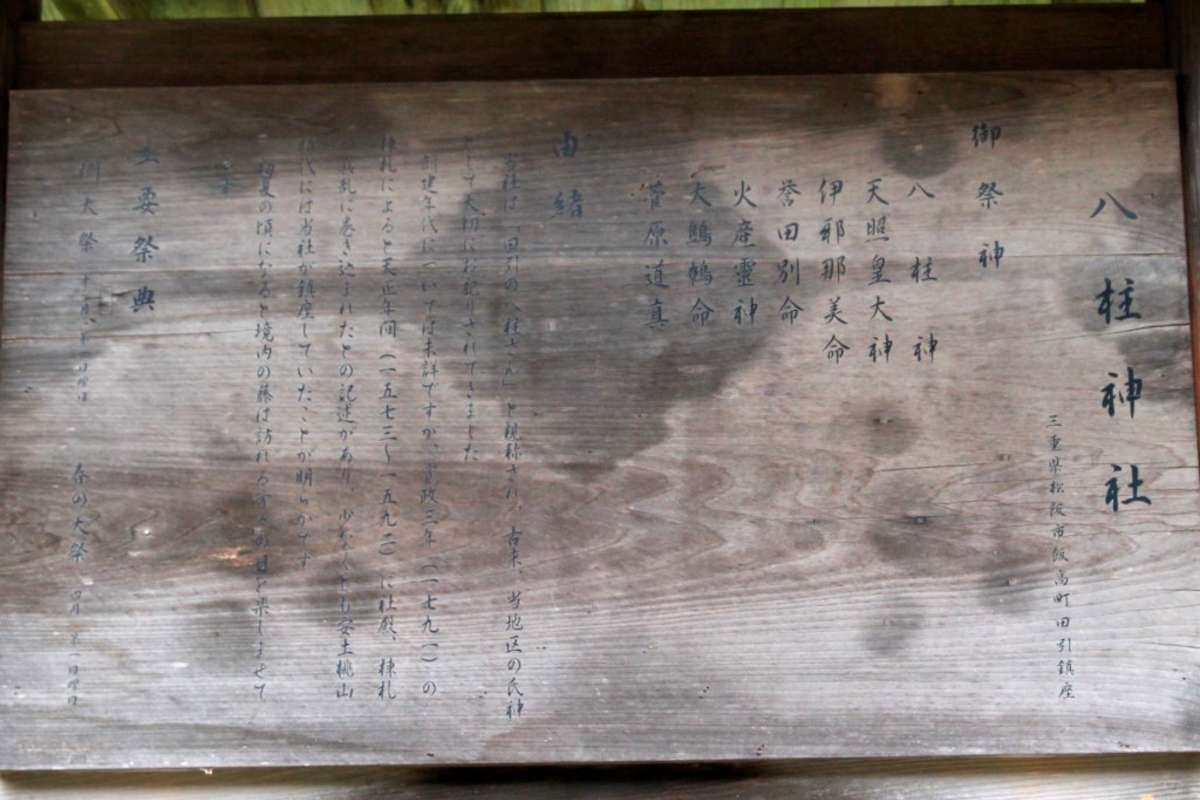 八柱神社
三重県松阪市飯高町田引鎮座
御祭神
八柱神
天照皇大神
伊邪那美命
誉田別命
火産霊神
大鷦鷯命
菅原道真
由緒
当社は「田引の八柱さん」と親称され、古来、当地区の氏神
として大切にお祀りされてきました
創建年代については未詳ですが、寛政三年(一七九一)の
棟札によると天正年間(一五七三〜一五九二)に社殿、棟札
戦乱に巻き込まれたとの記述があり、少なくとも安土桃山
時代には当社が鎮座していたことが明らかです
初夏の頃になると境内の藤は訪れる の目を楽しませて
主要祭典
例大祭
春の大祭 四月 第一日曜日